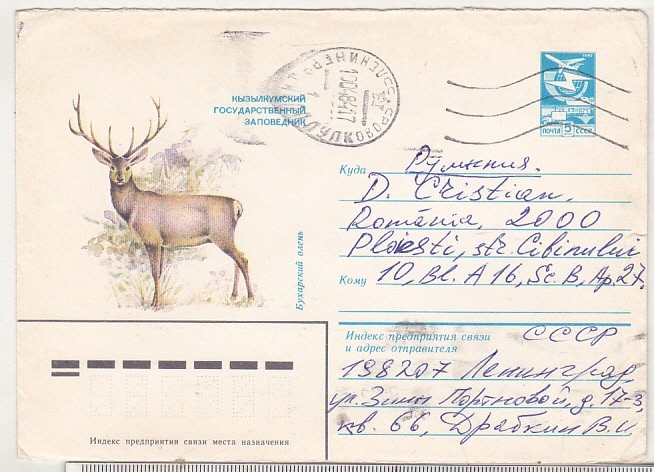 КЫЗЫЛКУМСКИЙ
ГОСУДАРСТВЕННЫЙ
ЗАПОВЕДНИК
ПОЧТА 5 СССР
Бухарский олень
Куда Румыния.
D. Cristian.
România, 2000
Ploiesti, str. Cibinului
Кому 10, Bl. A 16, Sc. B, Ap. 27.
Индекс предприятия связи
и адрес отправителя
СССР
198207 Ленинград,
ул. Зины Портновой, д. 17-3,
кв. 66, Драбкин В.И.
Индекс предприятия связи места назначения